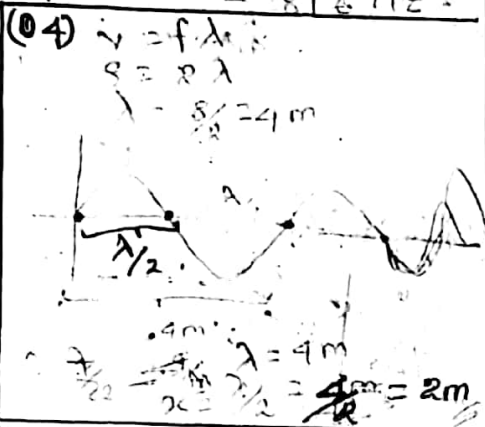 (04) v = fλ
8 = 2 λ
λ = 8/2 = 4 m
λ
λ/2
4m
λ = 4m
x = λ/2 = 4m/2 = 2m